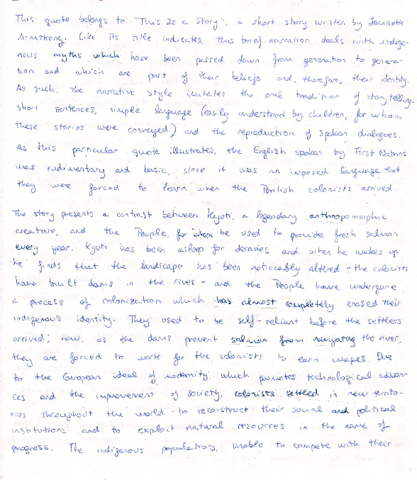 This quote belongs to "This Is a Story", a short story written by Jeannette
Armstrong. Like its title indicates, this brief narration deals with indige-
nous myths which have been passed down from generation to genera-
tion and which are part of their beliefs and, therefore, their identity.
As such, the narrative style imitates the oral tradition of storytelling:
short sentences, simple language (easily understood by children, for whom
these stories were conveyed) and the reproduction of spoken dialogues.
As this particular quote illustrates, the English spoken by First Nations
was rudimentary and basic, since it was an imposed language that
they were forced to learn when the British colonists arrived.
The story presents a contrast between Kyoti, a legendary anthropomorphic
creature, and the People, for whom he used to provide fresh salmon
every year. Kyoti has been asleep for decades and when he wakes up
he finds that the landscape has been noticeably altered - the colonists
have built dams in the river - and the People have undergone
a process of colonization which has almost completely erased their
indigenous identity. They used to be self-reliant before the settlers
arrived; now, as the dams prevent salmon from navigating the river,
they are forced to work for the colonists to earn wages. Due
to the European ideal of modernity which promotes technological advan-
ces and the improvement of society, colonists settled in new territo-
ries throughout the world to reconstruct their social and political
institutions and to exploit natural resources in the name of
progress. The indigenous populations, unable to compete with their